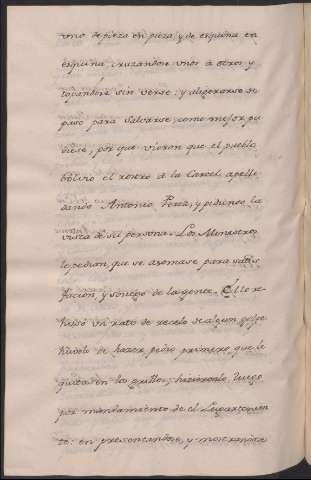 uno de pieza en pieza, y de esquina en
esquina, cruzandose unos á otros y
topandose sin verse: y aligerarse de
paso para salvarse, como mejor pu
diese, por que vieron que el pueblo
bolvio el rostro á la Carcel apelli
dando Antonio Perez, y pidiendo la
vista de su persona. Los Ministros
le pedian, que se asomase para satis
facion y sosiego de la gente. El lo re
husó un rato de recelo de algun golpe
hubolo de hazer, pidió primero, que le
quitasen los grillos: hizieronlo luego
por mandamiento de el Lugarteniente
te: en presentandose, y mostrandose